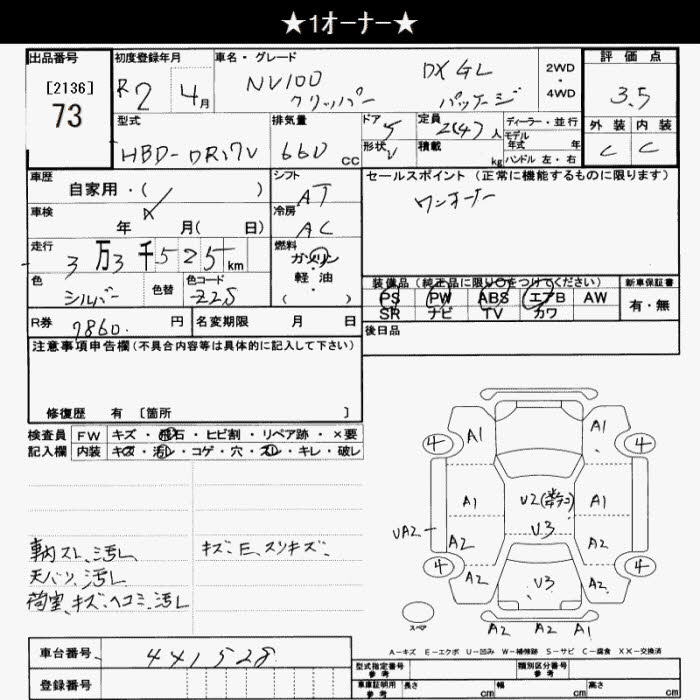 ★1オーナー★
出品番号 初度登録年月 車名・グレード 評価点
[2136] 73 R2 4月 NV100 クリッパー DX GL パッケージ 2WD・4WD 3.5
型式 排気量 ドア 5 定員 2(4)人 ディーラー・並行 外装 内装
HBD-DR17V 660cc 形状 V 積載 kg モデル年式 年 ハンドル 左・右 C C
車歴 自家用・( ) シフト AT セールスポイント（正常に機能するものに限ります）
車検 年 月( 日) 冷房 AC ワンオーナー
走行 3万3千525km 燃料 ガソリン・軽油 ( )
色 シルバー 色替 色コード Z2S
装備品（純正品に限り○をつけてください） 新車保証書
PS PW ABS エアB AW 有・無
SR ナビ TV カワ
R券 7860円 名変期限 月 日 後日品
注意事項申告欄（不具合内容等は具体的に記入して下さい）
修復歴 有 [箇所 ]
検査員 FW キズ・飛石・ヒビ割・リペア跡・×要
記入欄 内装 キズ・汚レ・コゲ・穴・スレ・キレ・破レ
車内スレ、汚レ キズ、E、スリキズ
天バリ、汚レ
荷室、キズ、ヘコミ、汚レ
4 A1 A1 4
A1 U2 A1
UA2 A2 U3 A2
4 A2 U3 A2 4
スペア A2 A2 A1
A－キズ E－エクボ U－凹み W－補修跡 S－サビ C－腐食 XX－交換済
車台番号 441528 型式指定番号 参考 類別区分番号 参考
登録番号 車庫証明用 参考 長さ cm 幅 cm 高さ cm